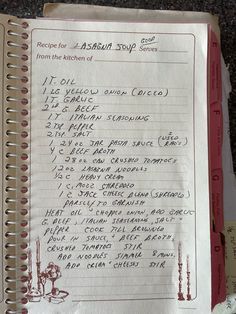 GOOD
Recipe for LASAGNA SOUP Serves
from the kitchen of
1 T OIL
1 LG YELLOW ONION (DICED)
1 T GARLIC
2 # G BEEF
1 T ITALIAN SEASONING
2 TSP PEPPER
2 TSP SALT
1 24 OZ JAR PASTA SAUCE (USED RAO'S)
4 C BEEF BROTH
1 28 OZ CAN CRUSHED TOMATOES
12 OZ LASAGNA NOODLES
1/2 C HEAVY CREAM
1 C MOZZ SHREDDED
1 C JACK CHEESE BLEND (SHREDDED)
PARSLEY TO GARNISH
HEAT OIL + CHOPPED ONION, ADD GARLIC
G BEEF, ITALIAN SEASONING, SALT +
PEPPER COOK TILL BROWNED
POUR IN SAUCE, BEEF BROTH,
CRUSHED TOMATOES STIR
ADD NOODLES SIMMER 8 MINS,
ADD CREAM + CHEESES STIR